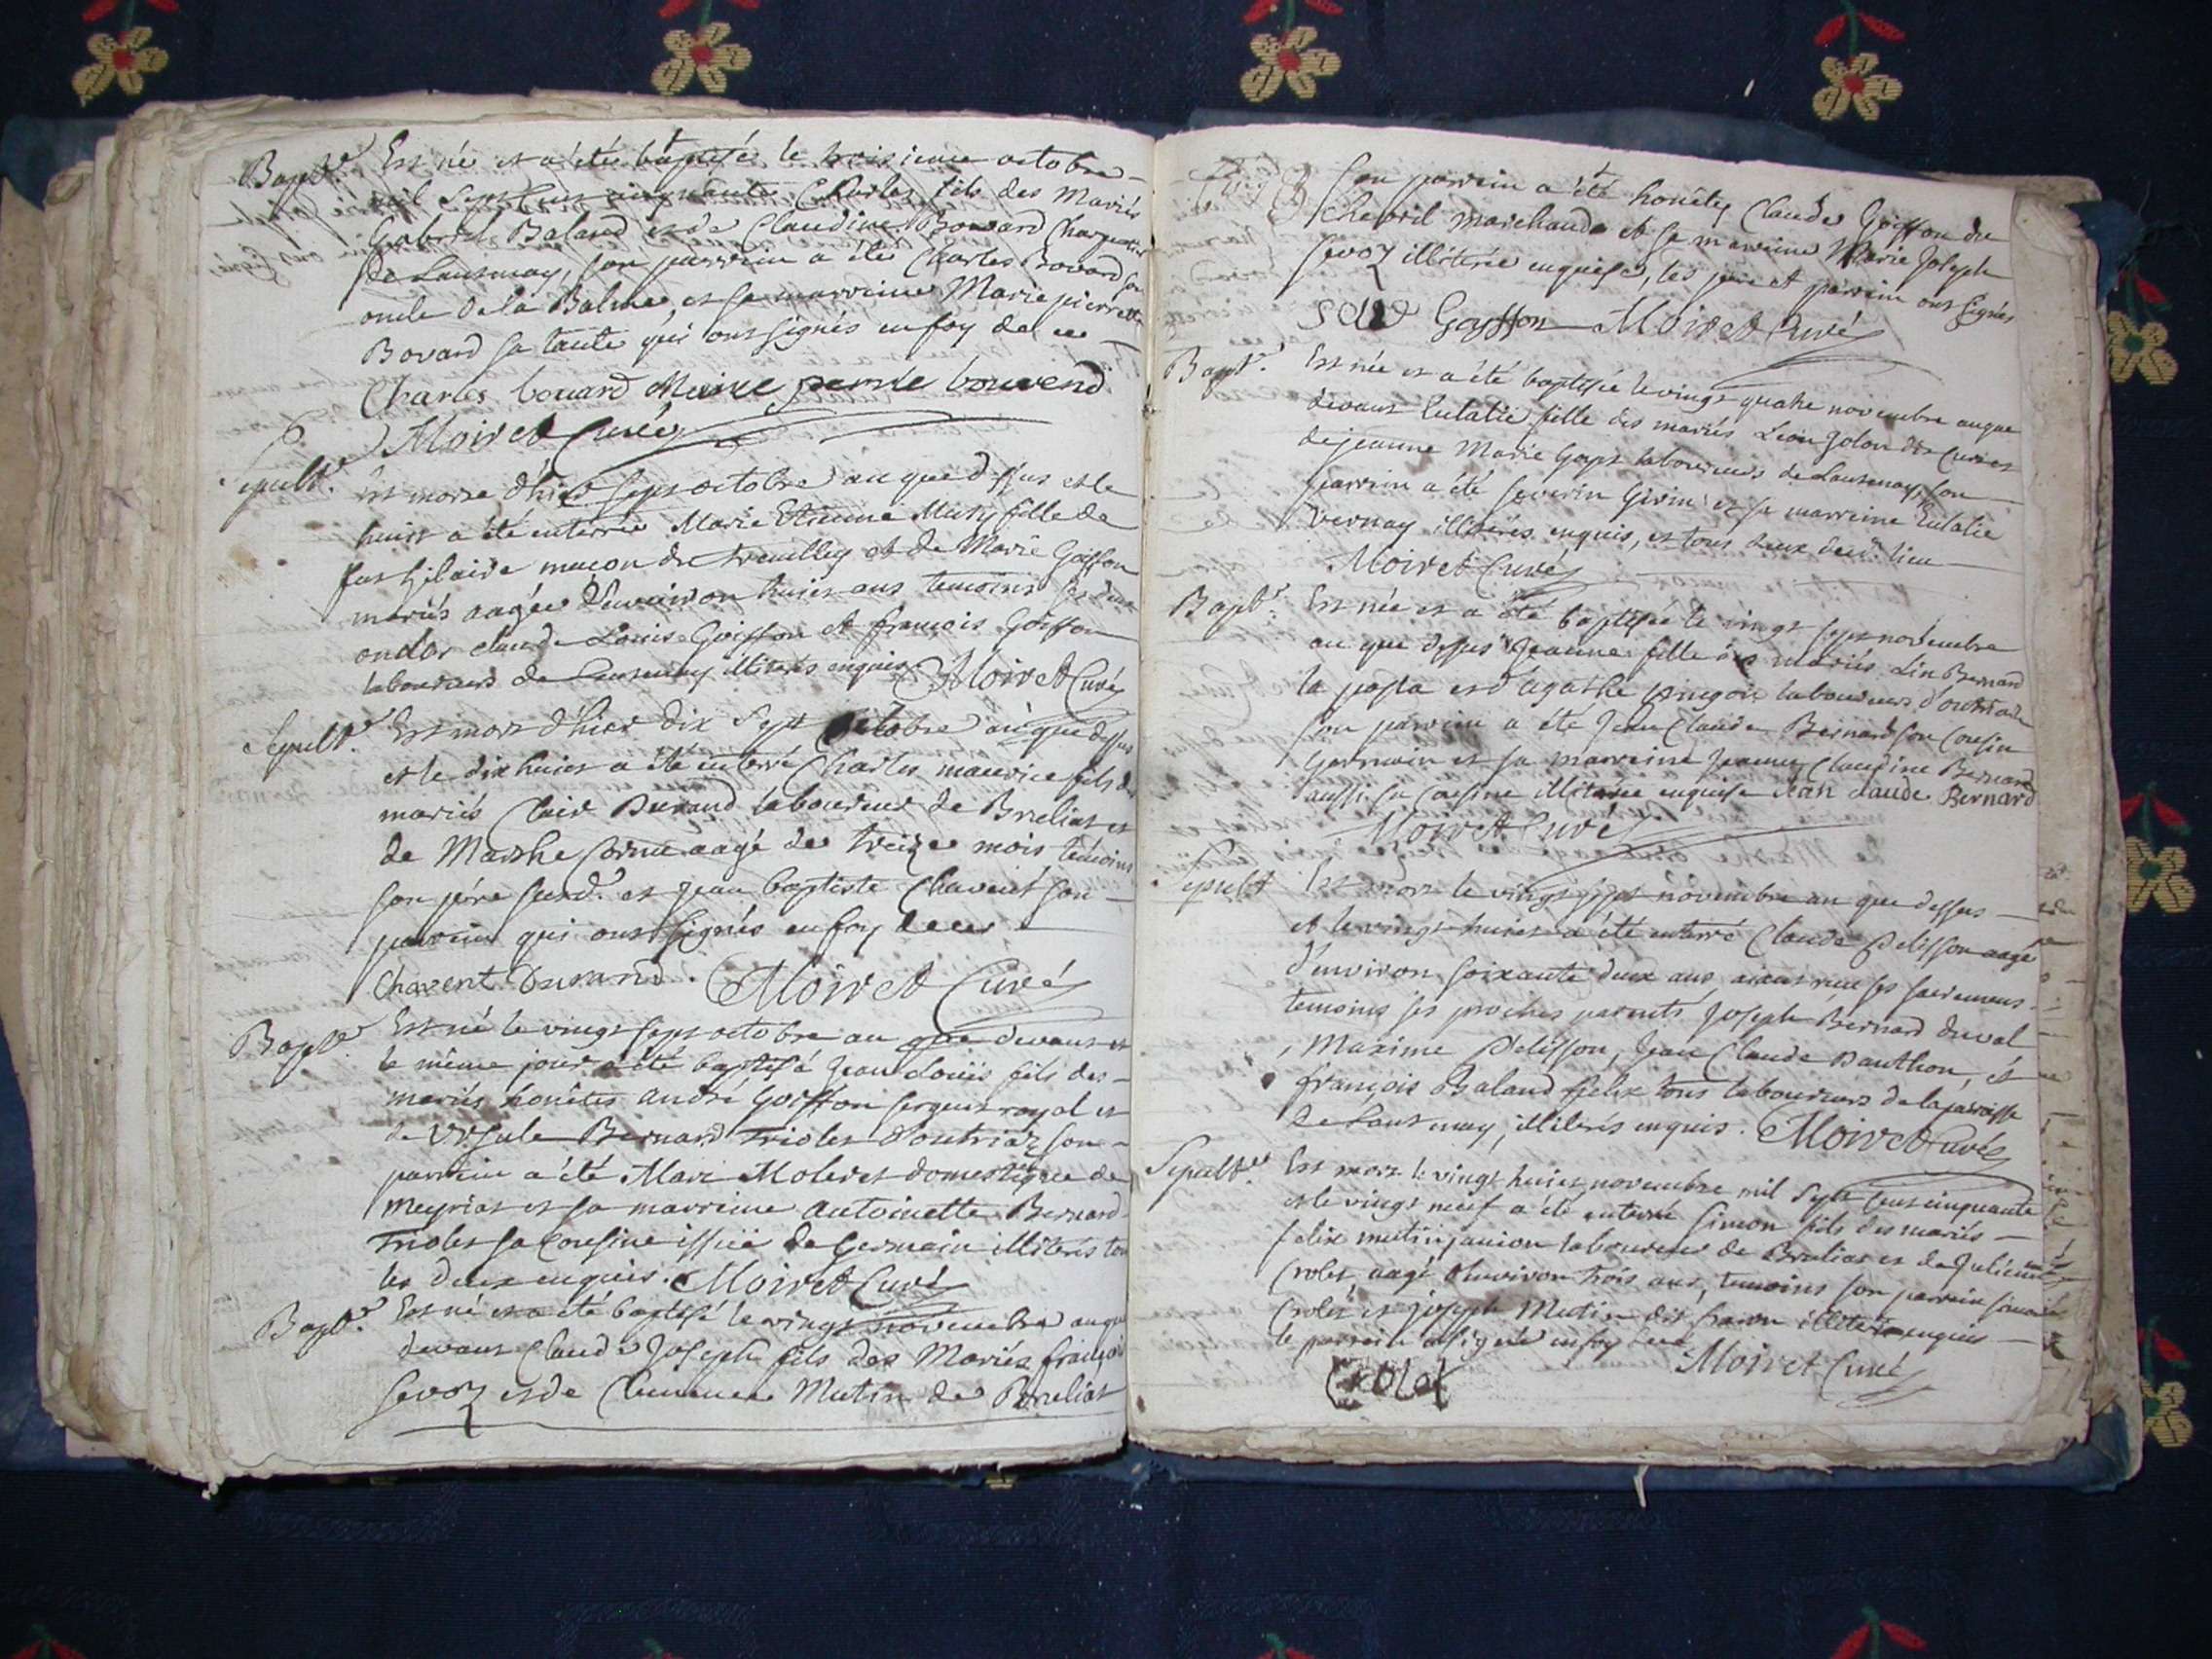 Bapt.e Est né et a été baptisé le troisieme octobre
mil sept cent cinquante Charles fils des Mariés
Gabriel Baland et de Claudine Bovard Charpentier
de Lantenay, son parrein a été Charles Bovard son
oncle de la Balme, et sa marreine Marie pierrette
Bovard sa tante qui ont signés en foy de ce
Charles bovard
Moiret Curé
Sepult.e Est morte d'hier sept octobre an que dessus et le
huit a été enterrée Marie Etienne Muty fille de
fut hilaire maçon de et de Marie Goiffon
mariés aagée d'environ huit ans temoins ses deux
oncles claude Louis Goiffon et françois Goiffon
laboureurs de Lantenay illiterés enquis. Moiret Curé
Sepult.e Est mort d'hier dix sept octobre an que dessus
et le dix huict a été enterré Charles maurice fils de
mariés Clair Durand laboureur de Brelias et
de Marthe aagé de treize mois temoins
son pére et Jean baptiste Chavent son
parrein qui ont signés en foy de ce
Chavent Durand. Moiret Curé
Bapt.e Est né le vingt sept octobre an que devant et
le même jour a été baptisé Jean Loüis fils des
mariés honêtes andré Goiffon sergent royal et
de Ursule Bernard Triolet d'outriaz son
parrein a été Marc Moleret domestique de
Meyriat et sa marreine antoinette Bernard
Triolet sa Cousine issüe de Germain illiterés tous
les deux enquis. Moiret Curé
Bapt.e Est né et a été baptisé le vingt novembre an que
devant Claude Joseph fils des Mariés françois
Savoy et de Clemence Mutin de Brelias
son parrein a été honête Claude Goiffon de
Chevril marchand et sa marreine Marie Joseph
Savoy illiterée enquise, les pere et parrein ont signés
Goiffon Moiret Curé
Bapt.e Est née et a été baptisée le vingt quatre novembre an que
devant Eulalie fille des mariés Leon Jolon dit Curt et
de jeanne Marie Goyet laboureurs de Lantenay, son
parrein a été Severin Girin et sa marreine Eulalie
Vernay illiterés enquis, et tous deux dud.t lieu
Moiret Curé
Bapt.e Est née et a été baptisée le vingt sept novembre
an que dessus Jeanne fille des mariés Lin Bernard
la posta et d'agathe pingon laboureurs d'outriaz
son parrein a été Jean Claude Bernard son Cousin
Germain et sa marreine Jeanne Claudine Bernard
aussi sa Cousine illiterée enquise Jean claude Bernard
Moiret Curé
Sepult Est mort le vingt sept novembre an que dessus
et le vingt huict a été enterré Claude Pelisson aagé
d'environ soixante deux ans aiant receu ses sacremens
temoins ses proches parents Joseph Bernard duval
Maxime Pelisson, Jean Claude Dauthon, et
françois Baland felix tous laboureurs de la parroisse
de Lantenay, illiterés enquis. Moiret Curé
Sepult.e Est mort le vingt huict novembre mil sept cent cinquante
et le vingt neuf a été enterré Simon fils des mariés
felix mutin janion laboureur de Brelias et de Julienne
Crolet aagé d'environ trois ans, temoins son parrein simon
Crolet et joseph Mutin dit baron illiteré enquis
le parrein a signé en foy de ce
Crolet Moiret Curé